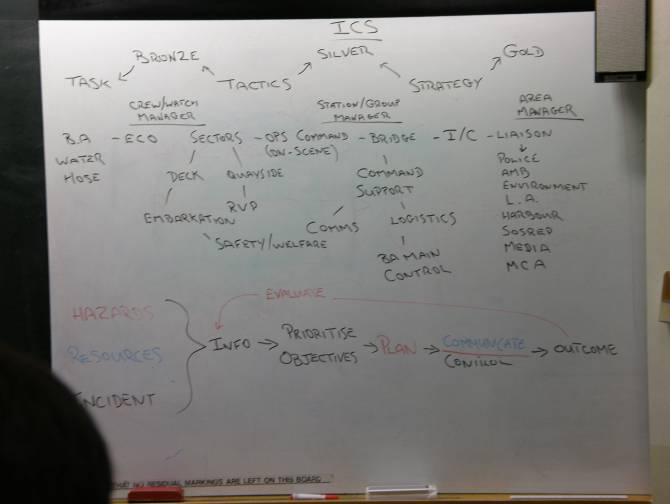 ICS
BRONZE SILVER GOLD
TASK TACTICS STRATEGY
CREW/WATCH MANAGER
STATION/GROUP MANAGER
AREA MANAGER
B.A - ECO SECTORS - OPS COMMAND - BRIDGE - I/C - LIAISON
(ON-SCENE)
WATER
HOSE
DECK QUAYSIDE
EMBARKATION
RVP
SAFETY/WELFARE
COMMAND
SUPPORT
COMMS
LOGISTICS
BA MAIN
CONTROL
POLICE
AMB
ENVIRONMENT
L.A.
HARBOUR
SOSREP
MEDIA
MCA
EVALUATE
HAZARDS
RESOURCES
INCIDENT
INFO → PRIORITISE OBJECTIVES → PLAN → COMMUNICATE CONTROL → OUTCOME
THAT NO RESIDUAL MARKINGS ARE LEFT ON THIS BOARD